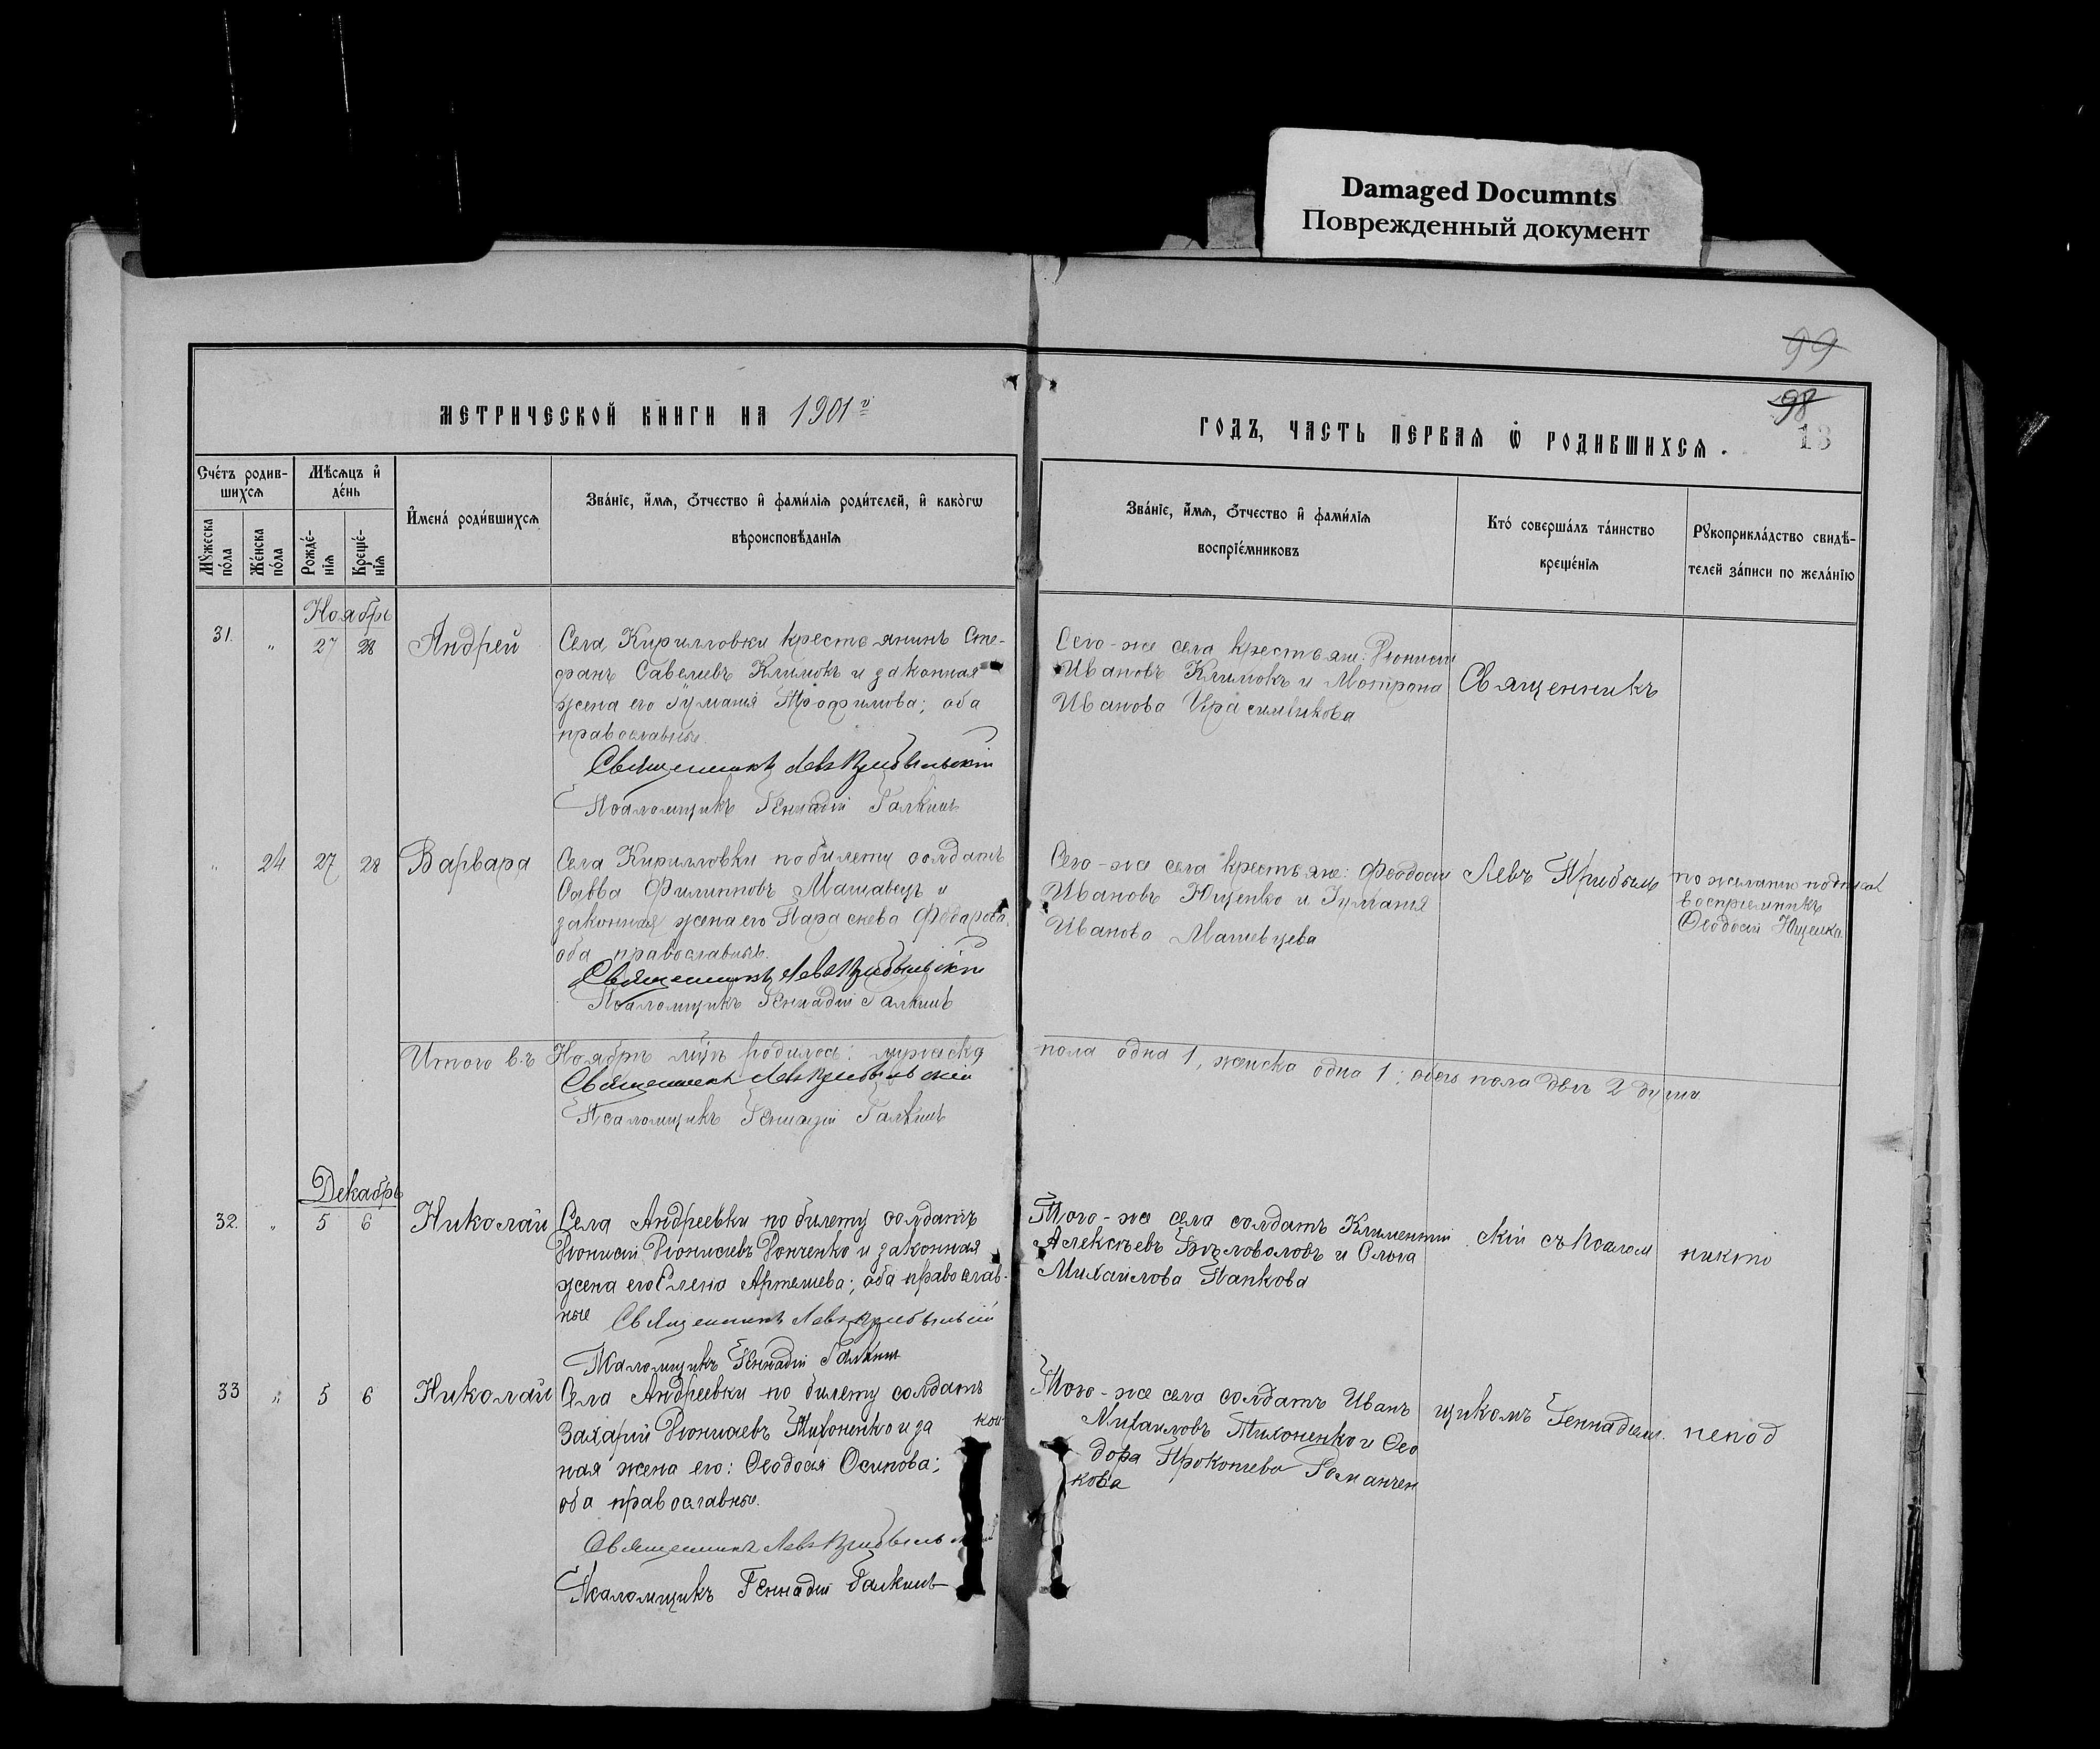 Damaged Documnts
Поврежденный документ
99
98
13
МЕТРИЧЕСКОЙ КНИГИ НА 1901
ГОДЪ, ЧАСТЬ ПЕРВАѦ Ѽ РОДИВШИХСѦ.
Сче́тъ родив-
шихсѧ
Мꙋ́жеска по́ла
Же́нска по́ла
Мѣ́сѧцъ и҆
де́нь
Рожде́-
нїѧ
Креще́-
нїѧ
И҆мена̀ роди́вшихсѧ
Зва́нїе, и҆́мѧ, ѻ҆́тчество и҆ фами́лїѧ роди́телей, и҆ како́гѡ
вѣроисповѣ́данїѧ
Зва́нїе, и҆́мѧ, ѻ҆́тчество и҆ фами́лїѧ
воспрїе́мниковъ
Кто̀ соверша́лъ та́инство
креще́нїѧ
Рꙋкоприкла́дство свидѣ́-
телей за́писи по жела́нїю
Ноябрь
31. " 27 28 Андрей
Села Кирилловки крестьянинъ Сте-
фанъ Савельевъ Климокъ и законная
жена его Гуманія Трофимова; оба
православные.
Священникъ Левъ Прибыльскій
Псаломщикъ Геннадій Галкинъ
Сего-же села крестьяне: Діонисій
Ивановъ Климокъ и Мотрона
Иванова Красникова
Священникъ
" 24 27 28 Варвара
Села Кирилловки по билету солдатъ
Савва Филипповъ Машавецъ и
законная жена его Параскева Федорова
оба православные.
Священникъ Левъ Прибыльскій
Псаломщикъ Геннадій Галкинъ
Сего-же села крестьяне: Феодосій
Ивановъ Ющенко и Гуманія
Иванова Машевцева
Левъ Прибыль
по желанію подписал
восприемникъ
Феодосій Ющенко
Итого въ Ноябрѣ м-цѣ родилось: мужеска
пола одна 1, женска одна 1; обего пола двѣ 2 души
Священникъ Левъ Прибыльскій
Псаломщикъ Геннадій Галкинъ
Декабрь
32. " 5 6 Николай
Села Андреевки по билету солдатъ
Діонисій Діонисіевъ Донченко и законная
жена его Елена Артемьева; оба православ-
ные Священникъ Левъ Прибыльскій
Псаломщикъ Геннадій Галкинъ
Того-же села солдатъ Климентій
Алексѣевъ Бѣловоловъ и Ольга
Михайлова Папкова
скій съ псалом
никто
33 " 5 6 Николай
Села Андреевки по билету солдатъ
Захарій Діонисіевъ Тихоненко и закон
ная жена его: Феодосія Осипова;
оба православные.
Священникъ Левъ Прибыльскій
Псаломщикъ Геннадій Галкинъ
Того-же села солдатъ Иванъ
Михайловъ Тихоненко и Фео
дора Прокопьева Романчен
кова
щикомъ Геннадіем.
непод